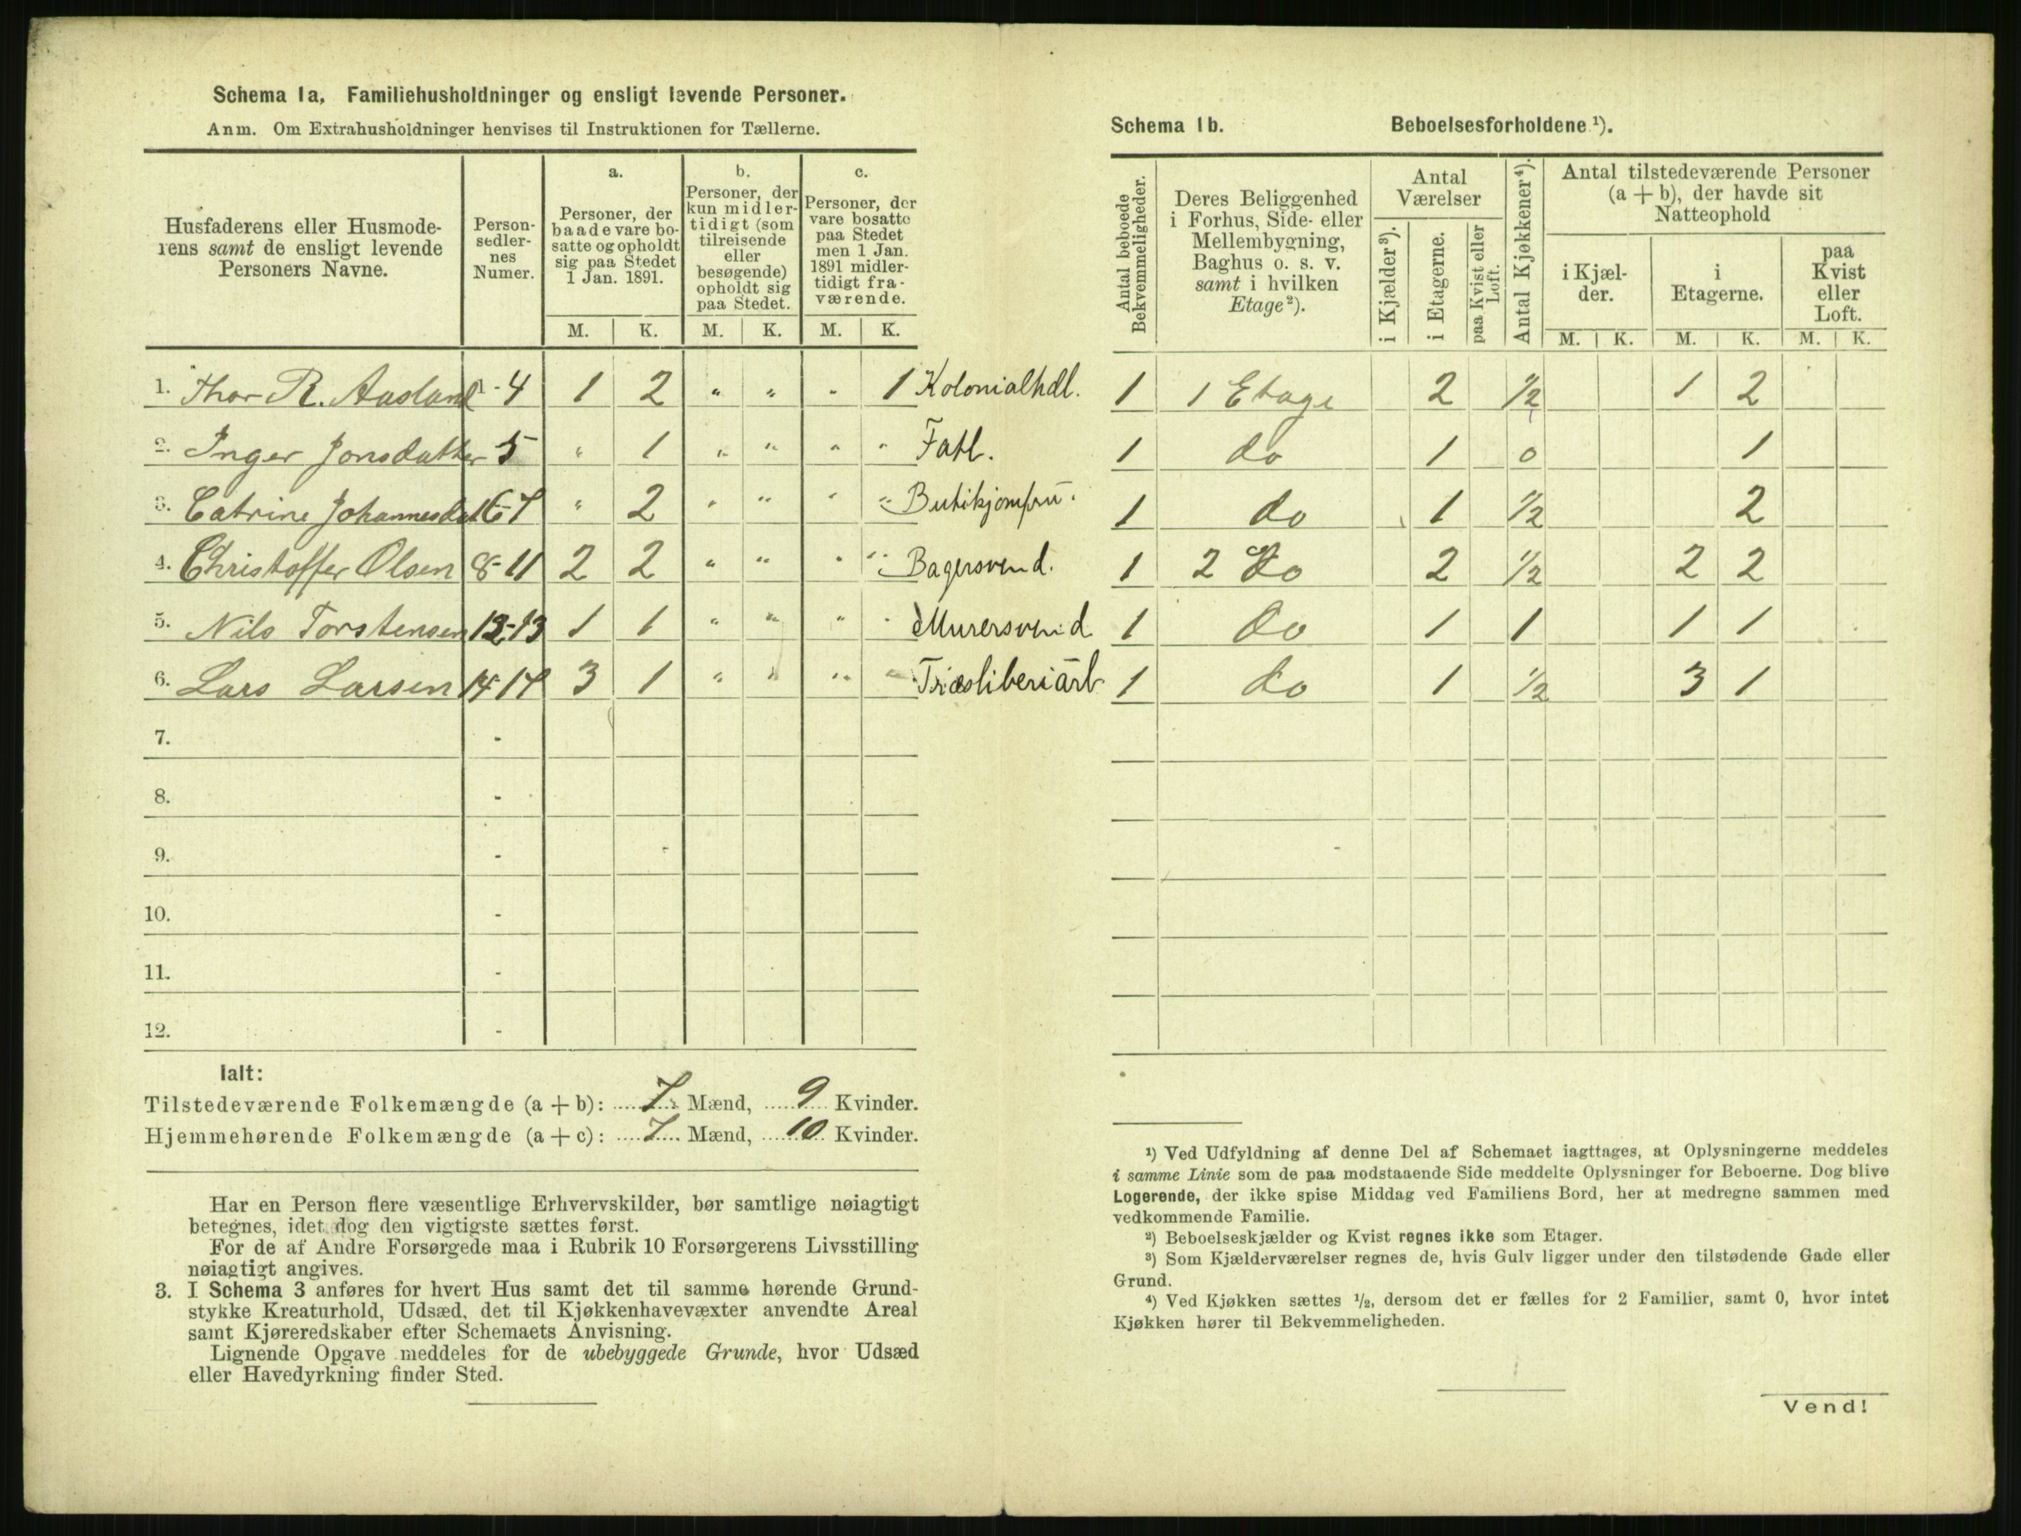 Schema 1a, Familiehusholdninger og ensligt levende Personer.
Anm. Om Extrahusholdninger henvises til Instruktionen for Tællerne.
Husfaderens eller Husmode-
rens samt de ensligt levende
Personers Navne.
Person-
sedler-
nes
Numer.
a.
Personer, der
baade vare bo-
satte og opholdt
sig paa Stedet
1 Jan. 1891.
b.
Personer, der
kun midler-
tidigt (som
tilreisende
eller
besøgende)
opholdt sig
paa Stedet.
c.
Personer, der
vare bosatte
paa Stedet
men 1 Jan.
1891 midler-
tidigt fra-
værende.
M. K. M. K. M. K.
1. Thor R. Aasland 1-4 1 2 " " " 1 Kolonialhdl.
2. Inger Jonsdatter 5 " 1 " " " " Fatl.
3. Catrine Johannesdat 6-7 " 2 " " " " Butikjomfru.
4. Christoffer Olsen 8-11 2 2 " " " " Bagersvend.
5. Nils Torstensen 12-13 1 1 " " " " Murersvend
6. Lars Larsen 14-17 3 1 " " " "
7. -
8. -
9. -
10. -
11. -
12. -
Ialt:
Tilstedeværende Folkemængde (a + b): 7 Mænd, 9 Kvinder.
Hjemmehørende Folkemængde (a + c): 7 Mænd, 10 Kvinder.
Har en Person flere væsentlige Erhvervskilder, bør samtlige nøiagtigt
betegnes, idet dog den vigtigste sættes først.
For de af Andre Forsørgede maa i Rubrik 10 Forsørgerens Livsstilling
nøiagtigt angives.
3. I Schema 3 anføres for hvert Hus samt det til samme hørende Grund-
stykke Kreaturhold, Udsæd, det til Kjøkkenhavevæxter anvendte Areal
samt Kjøreredskaber efter Schemaets Anvisning.
Lignende Opgave meddeles for de ubebyggede Grunde, hvor Udsæd
eller Havedyrkning finder Sted.
Schema 1b. Beboelsesforholdene ¹).
Antal beboede
Bekvemmeligheder.
Deres Beliggenhed
i Forhus, Side- eller
Mellembygning,
Baghus o. s. v.
samt i hvilken
Etage ²).
Antal
Værelser
i Kjælder ³).
i Etagerne.
paa Kvist eller
Loft.
Antal Kjøkkener ⁴).
Antal tilstedeværende Personer
(a + b), der havde sit
Natteophold
i Kjæl-
der.
i
Etagerne.
paa
Kvist
eller
Loft.
M. K. M. K. M. K.
1 1 Etage 2 1/2 1 2
1 do 1 0 1
1 do 1 1/2 2
1 2 do 2 1/2 2 2
1 do 1 1 1 1
1 do 1 1/2 3 1
¹) Ved Udfyldning af denne Del af Schemaet iagttages, at Oplysningerne meddeles
i samme Linie som de paa modstaaende Side meddelte Oplysninger for Beboerne. Dog blive
Logerende, der ikke spise Middag ved Familiens Bord, her at medregne sammen med
vedkommende Familie.
²) Beboelseskjælder og Kvist regnes ikke som Etager.
³) Som Kjælderværelser regnes de, hvis Gulv ligger under den tilstødende Gade eller
Grund.
⁴) Ved Kjøkken sættes ½, dersom det er fælles for 2 Familier, samt 0, hvor intet
Kjøkken hører til Bekvemmeligheden.
Vend!